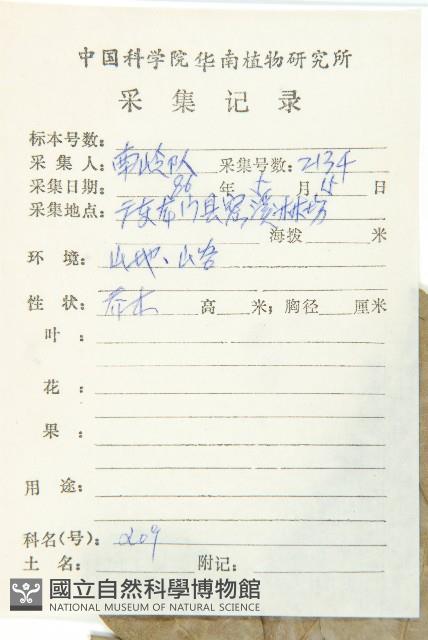 中国科学院华南植物研究所
采集记录
标本号数：
采集人：南岭队 采集号数：2134
采集日期：86年5月15日
采集地点：广东龙门县密溪林场
海拨 米
环境：山地、山谷
性状：乔木 高 米；胸径 厘米
叶：
花：
果：
用途：
科名(号)：209
土名： 附记：
國立自然科學博物館
NATIONAL MUSEUM OF NATURAL SCIENCE